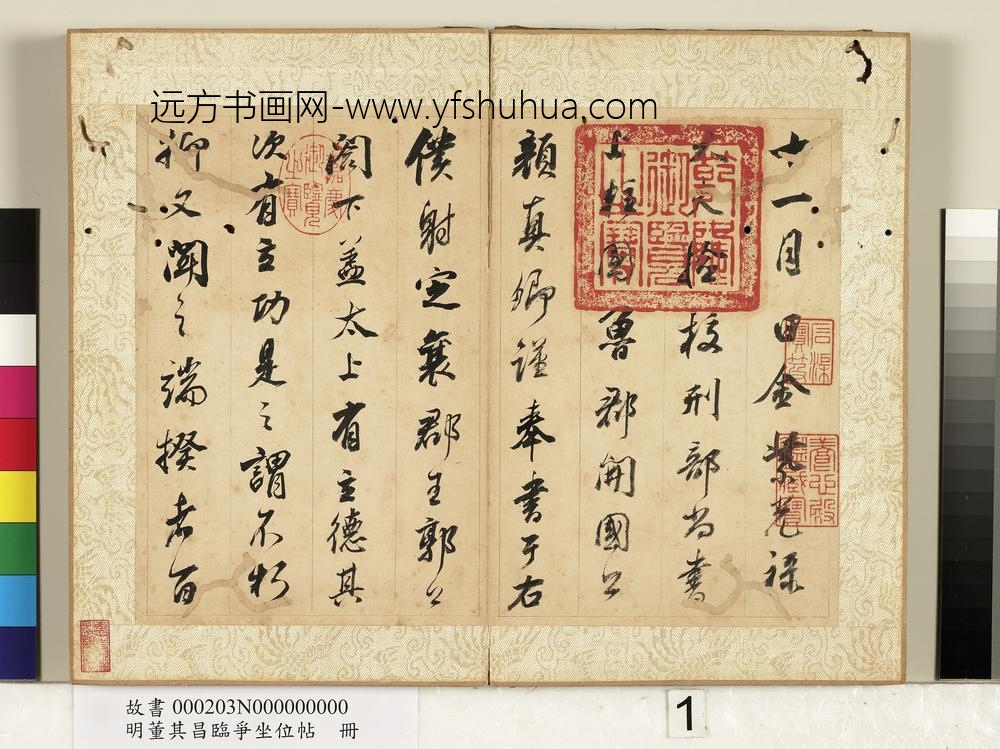 远方书画网-www.yfshuhua.com
十一月日金紫光禄
大夫檢校刑部尚書
上柱國魯郡開國公
顏真卿謹奉書于右
僕射定襄郡王郭公
閣下蓋太上有立德其
次有立功是之謂不朽
抑又聞之端揆者百
乾隆御覽之寶
嘉慶御覽之寶
石渠寶笈
養心殿鑑藏寶
故書 000203N000000000
明董其昌臨爭坐位帖 冊
1